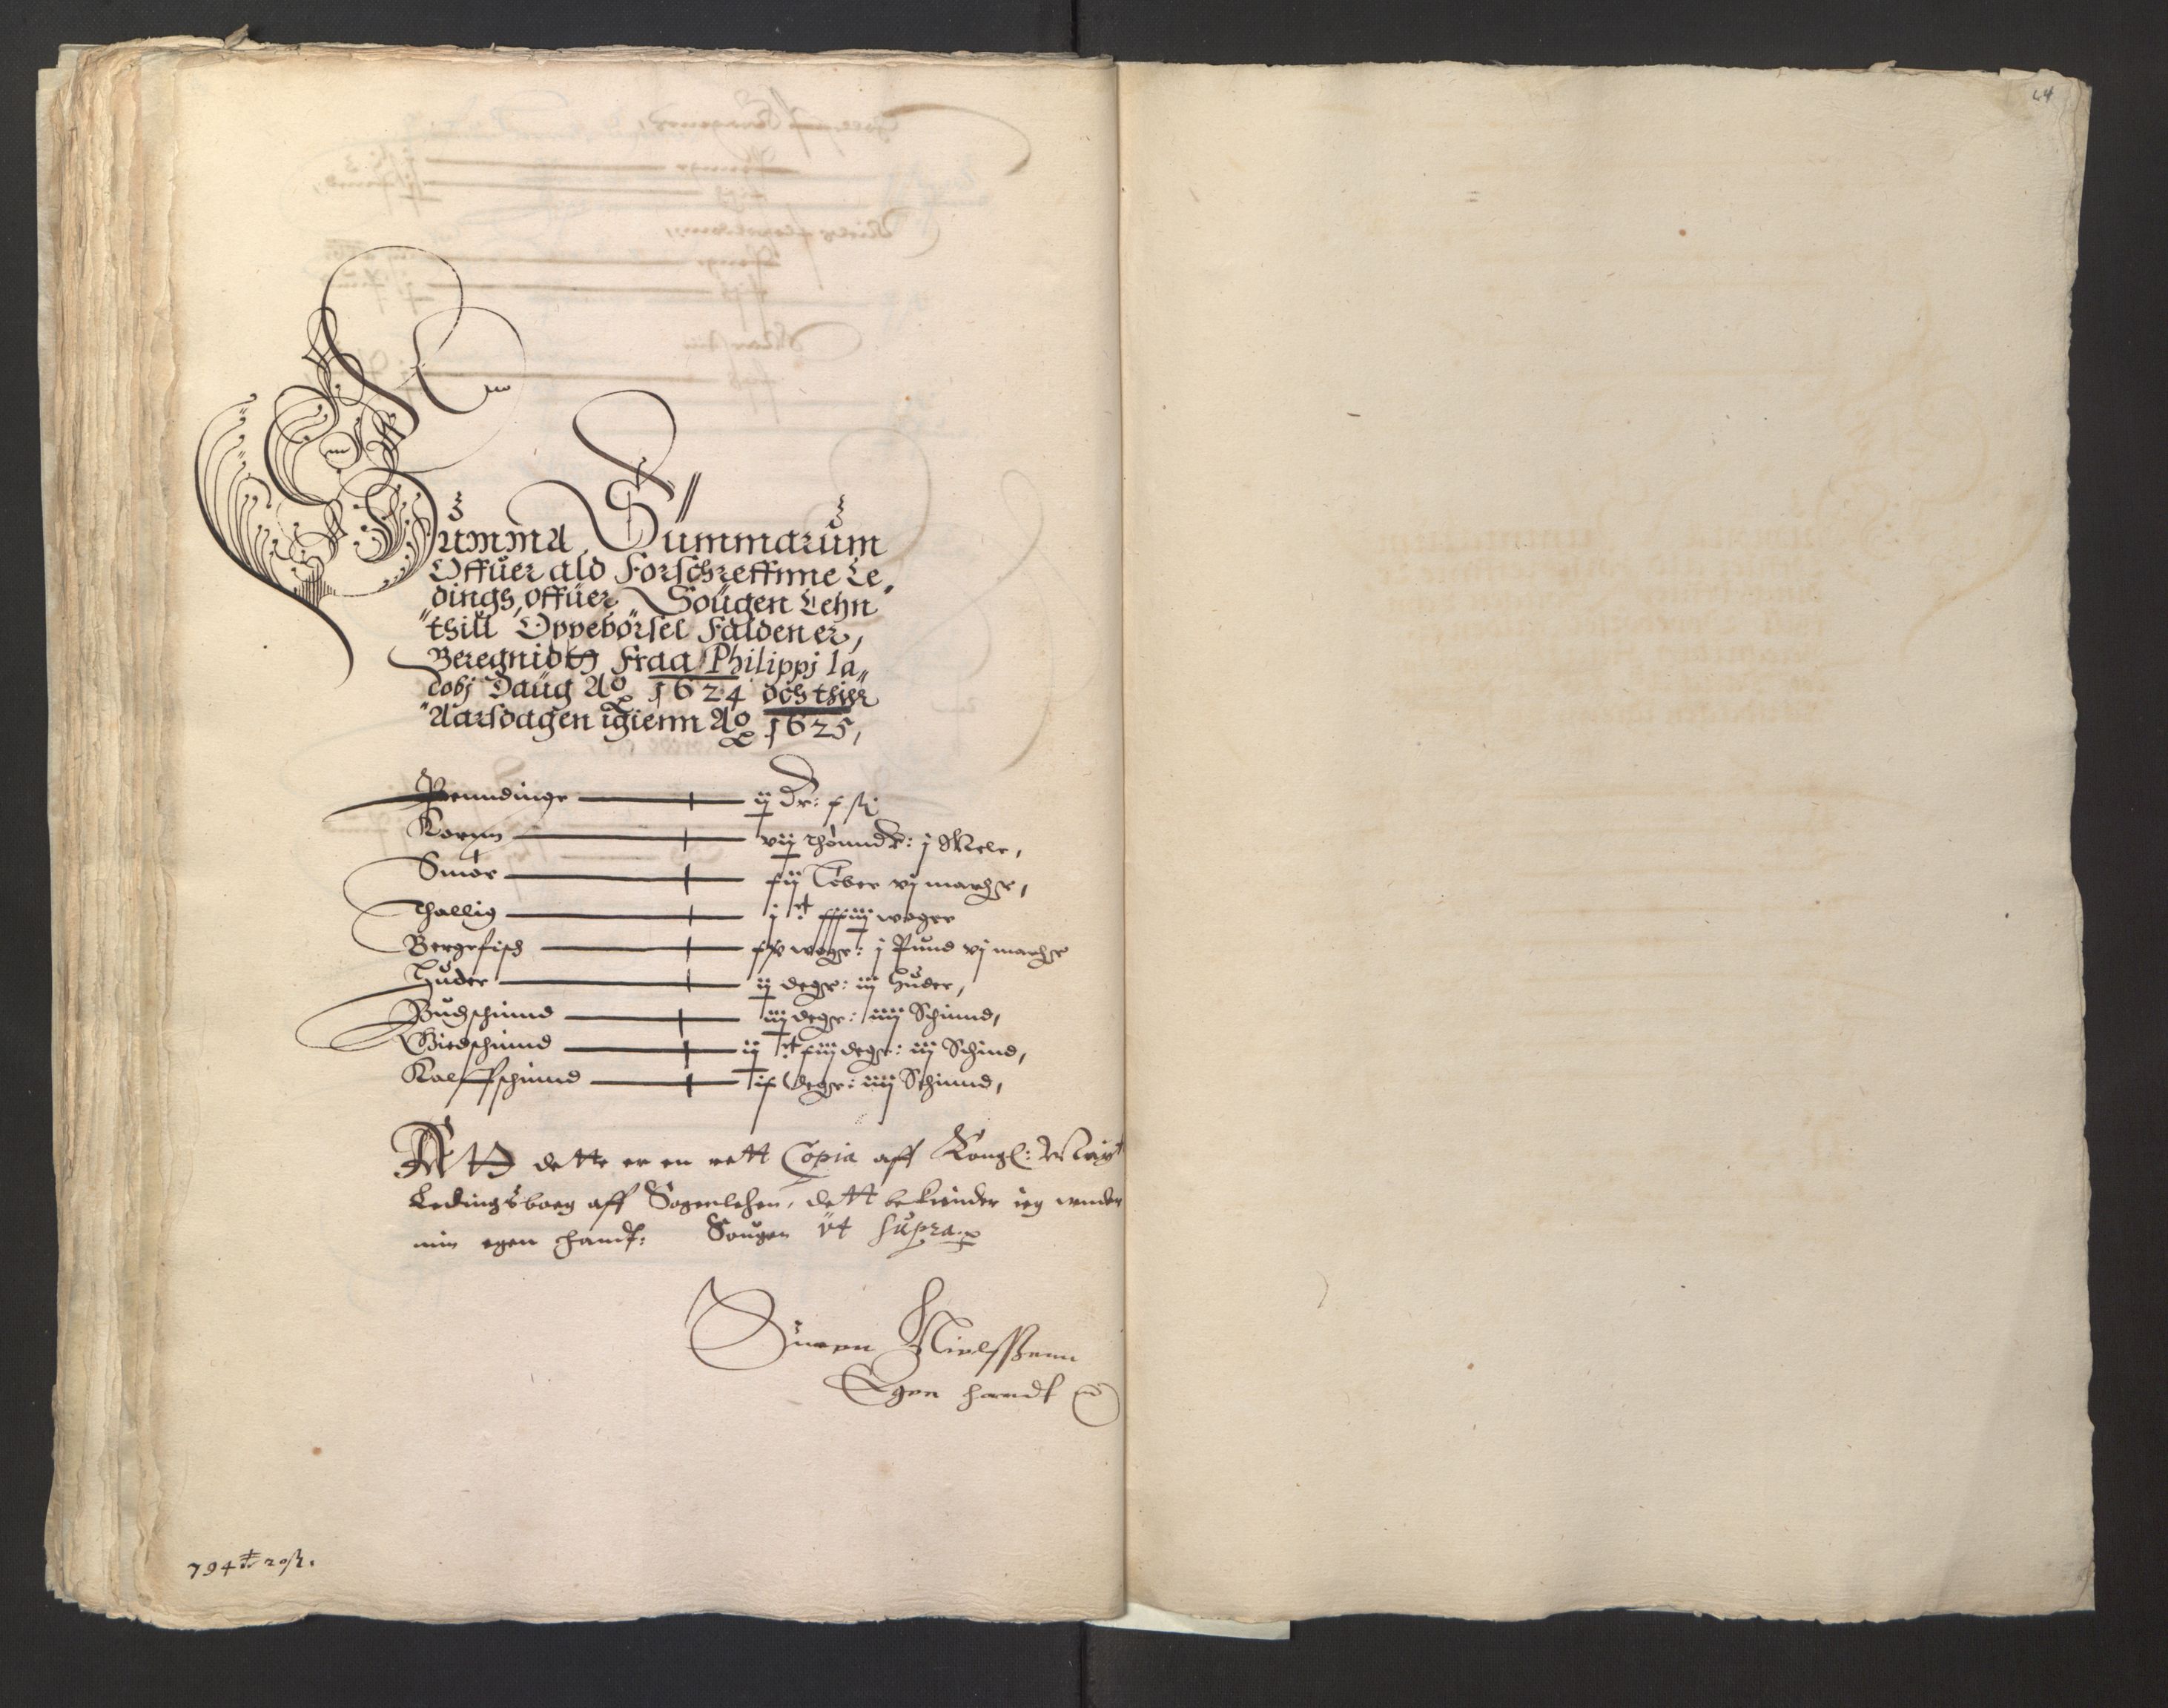 Summa Summarum
Offuer ald Forschreffnne Le,
dings, offuer Sougen Lehn
thill Oppebørsel Falden er,
Beregnidt Fraa Philippj Ja„
cobj Daug Ao 1624 och thill
Aarsdagen igienn Ao 1625,
Penndinge — ij Dr:
Kornn — vij thønnder: j Mele,
Smør — Løber vj marcher,
Thallig — woger
Bergefisch — woger: j Pund vj marcher
Huder — ij deger: iij Huder,
Buchschinnd — iij deger: iiij Schinnd,
Giedschinnd — deger: iij Schind,
Kalffschinnd — deger: iiij Schinnd,
Att dette er en rett Copia aff Kongl: Maytt
Ledingsbog aff Sogenlehen, dett bekiender ieg wnder
min egen handt: Sougen ut supra
Suren Nielsßenn
Egen handt
794 20 ß.
64